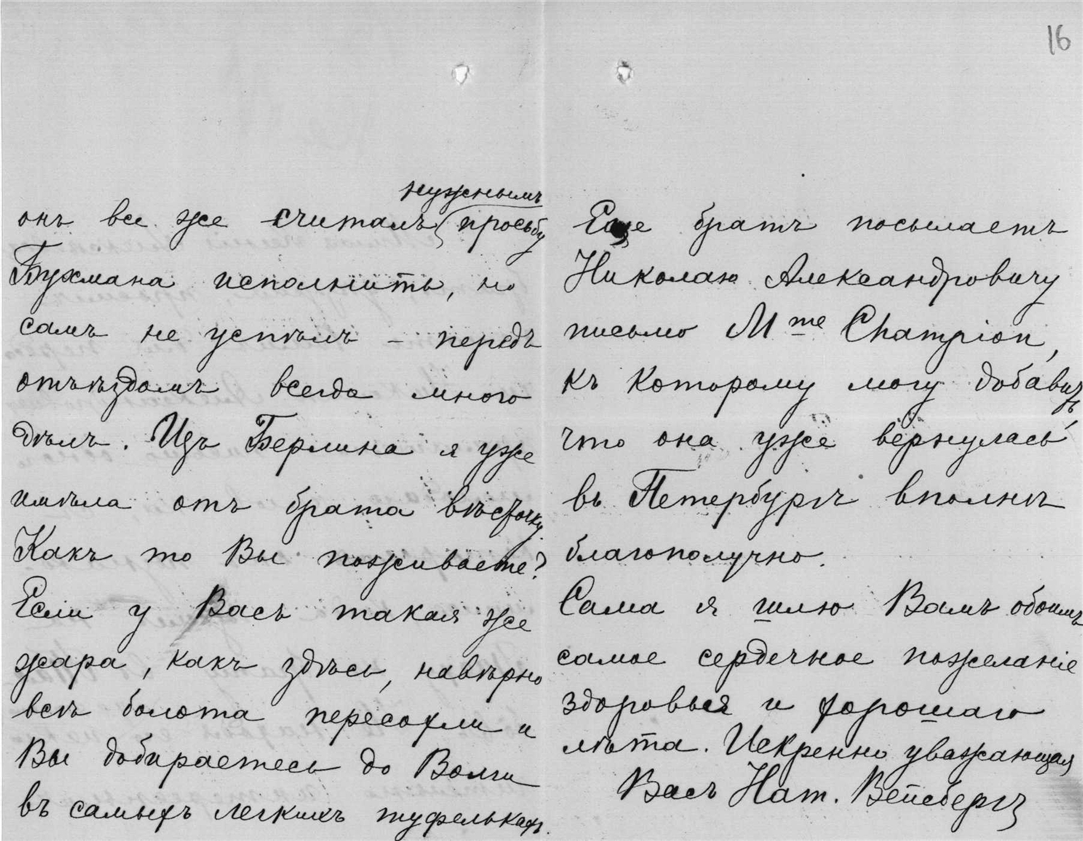 16
нужнымъ
онъ все же считалъ просьбу
Бухмана исполнить, но
самъ не успѣлъ – передъ
отъѣздомъ всегда много
дѣлъ. Изъ Берлина я уже
имѣла отъ брата вѣсточку
Какъ то Вы поживаете?
Если у Васъ такая же
жара, какъ здѣсь, навѣрно
всѣ болота пересохли и
Вы добираетесь до Волги
въ самыхъ легкихъ туфелькахъ.
Еще братъ посылаетъ
Николаю Александровичу
письмо Mme Champion,
къ которому могу добавить,
что она уже вернулась
въ Петербургъ вполнѣ
благополучно.
Сама я шлю Вамъ обоимъ
самое сердечное пожеланіе
здоровья и хорошаго
лѣта. Искренно уважающая
Васъ Нат. Вейсбергъ